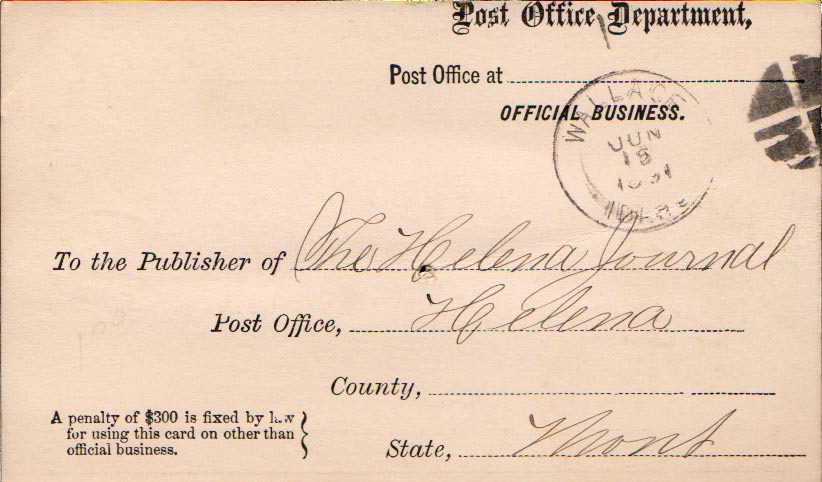 Post Office Department,
Post Office at
OFFICIAL BUSINESS.
WALLACE
JUN
15
1891
IDAHO
To the Publisher of The Helena Journal
Post Office, Helena
County,
A penalty of $300 is fixed by law
for using this card on other than
official business.
State, Mont
100